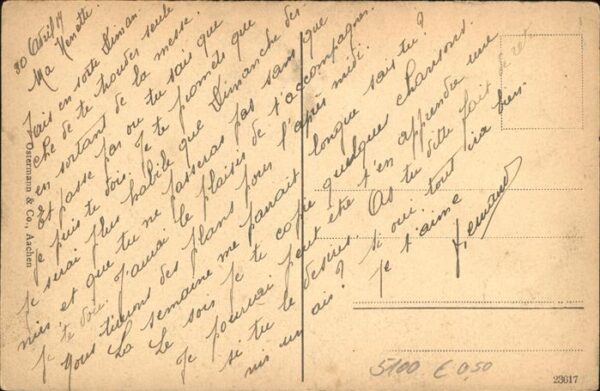 30 Avril 19
Ma Nenette.
Fais en sorte Diman
che de te trouver seule
en sortant de la messe.
Et passe pas ou tu sais que
je puis te voir. Je te promets que
je serai plus habile que Dimanche der
nier et que tu ne passeras pas sans que
je te voie. J'aurai le plaisir de t'accompagner.
Nous tirerons des plans pour l'après midi.
La semaine me parait longue sais tu?
Le soir je te copie quelques chansons.
Je pourrai peut etre t'en apprendre une
si tu le desires. As tu dille fait de
nis un ais? Si oui tout ira bien.
Je t'aime
Fernand
Ostermann & Co., Aachen
5100 € 0,50
23617